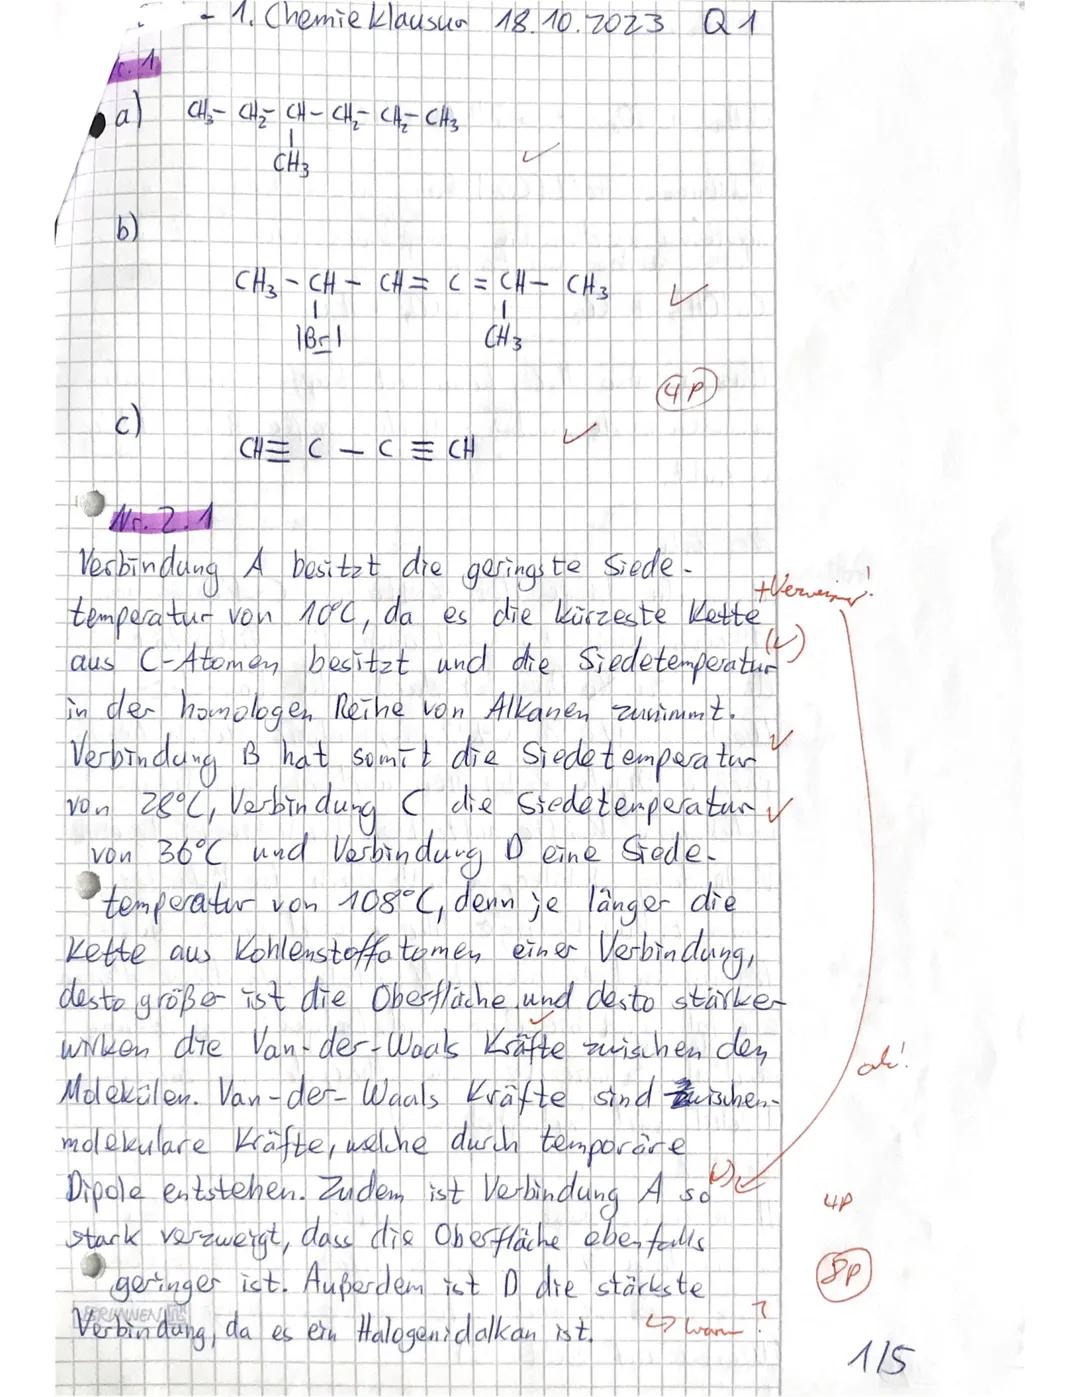 - 1. Chemieklausur 18.10.2023 Q1
. 1
a) CH₃- CH₂- CH- CH₂- CH₂- CH₃
CH₃
b)
CH₃ - CH - CH = C = CH - CH₃
|Br| CH₃
4P
c)
CH≡ C - C ≡ CH
Nr. 2.1
Verbindung A besitzt die geringste Siede-
temperatur von 10°C, da es die kürzeste Kette
aus C-Atomen besitzt und die Siedetemperatur
in der homologen Reihe von Alkanen zunimmt.
Verbindung B hat somit die Siedetemperatur
von 28°C, Verbindung C die Siedetemperatur
von 36°C und Verbindung D eine Siede-
temperatur von 108°C, denn je länger die
Kette aus Kohlenstoffatomen einer Verbindung,
desto größer ist die Oberfläche und desto stärker
wirken die Van-der-Waals Kräfte zwischen den
Molekülen. Van-der-Waals Kräfte sind zwischen-
molekulare Kräfte, welche durch temporäre
Dipole entstehen. Zudem ist Verbindung A so
4P
stark verzweigt, dass die Oberfläche ebenfalls
8P
geringer ist. Außerdem ist D die stärkste
BRUNNEN
Verbindung, da es ein Halogenidalkan ist.
1/5